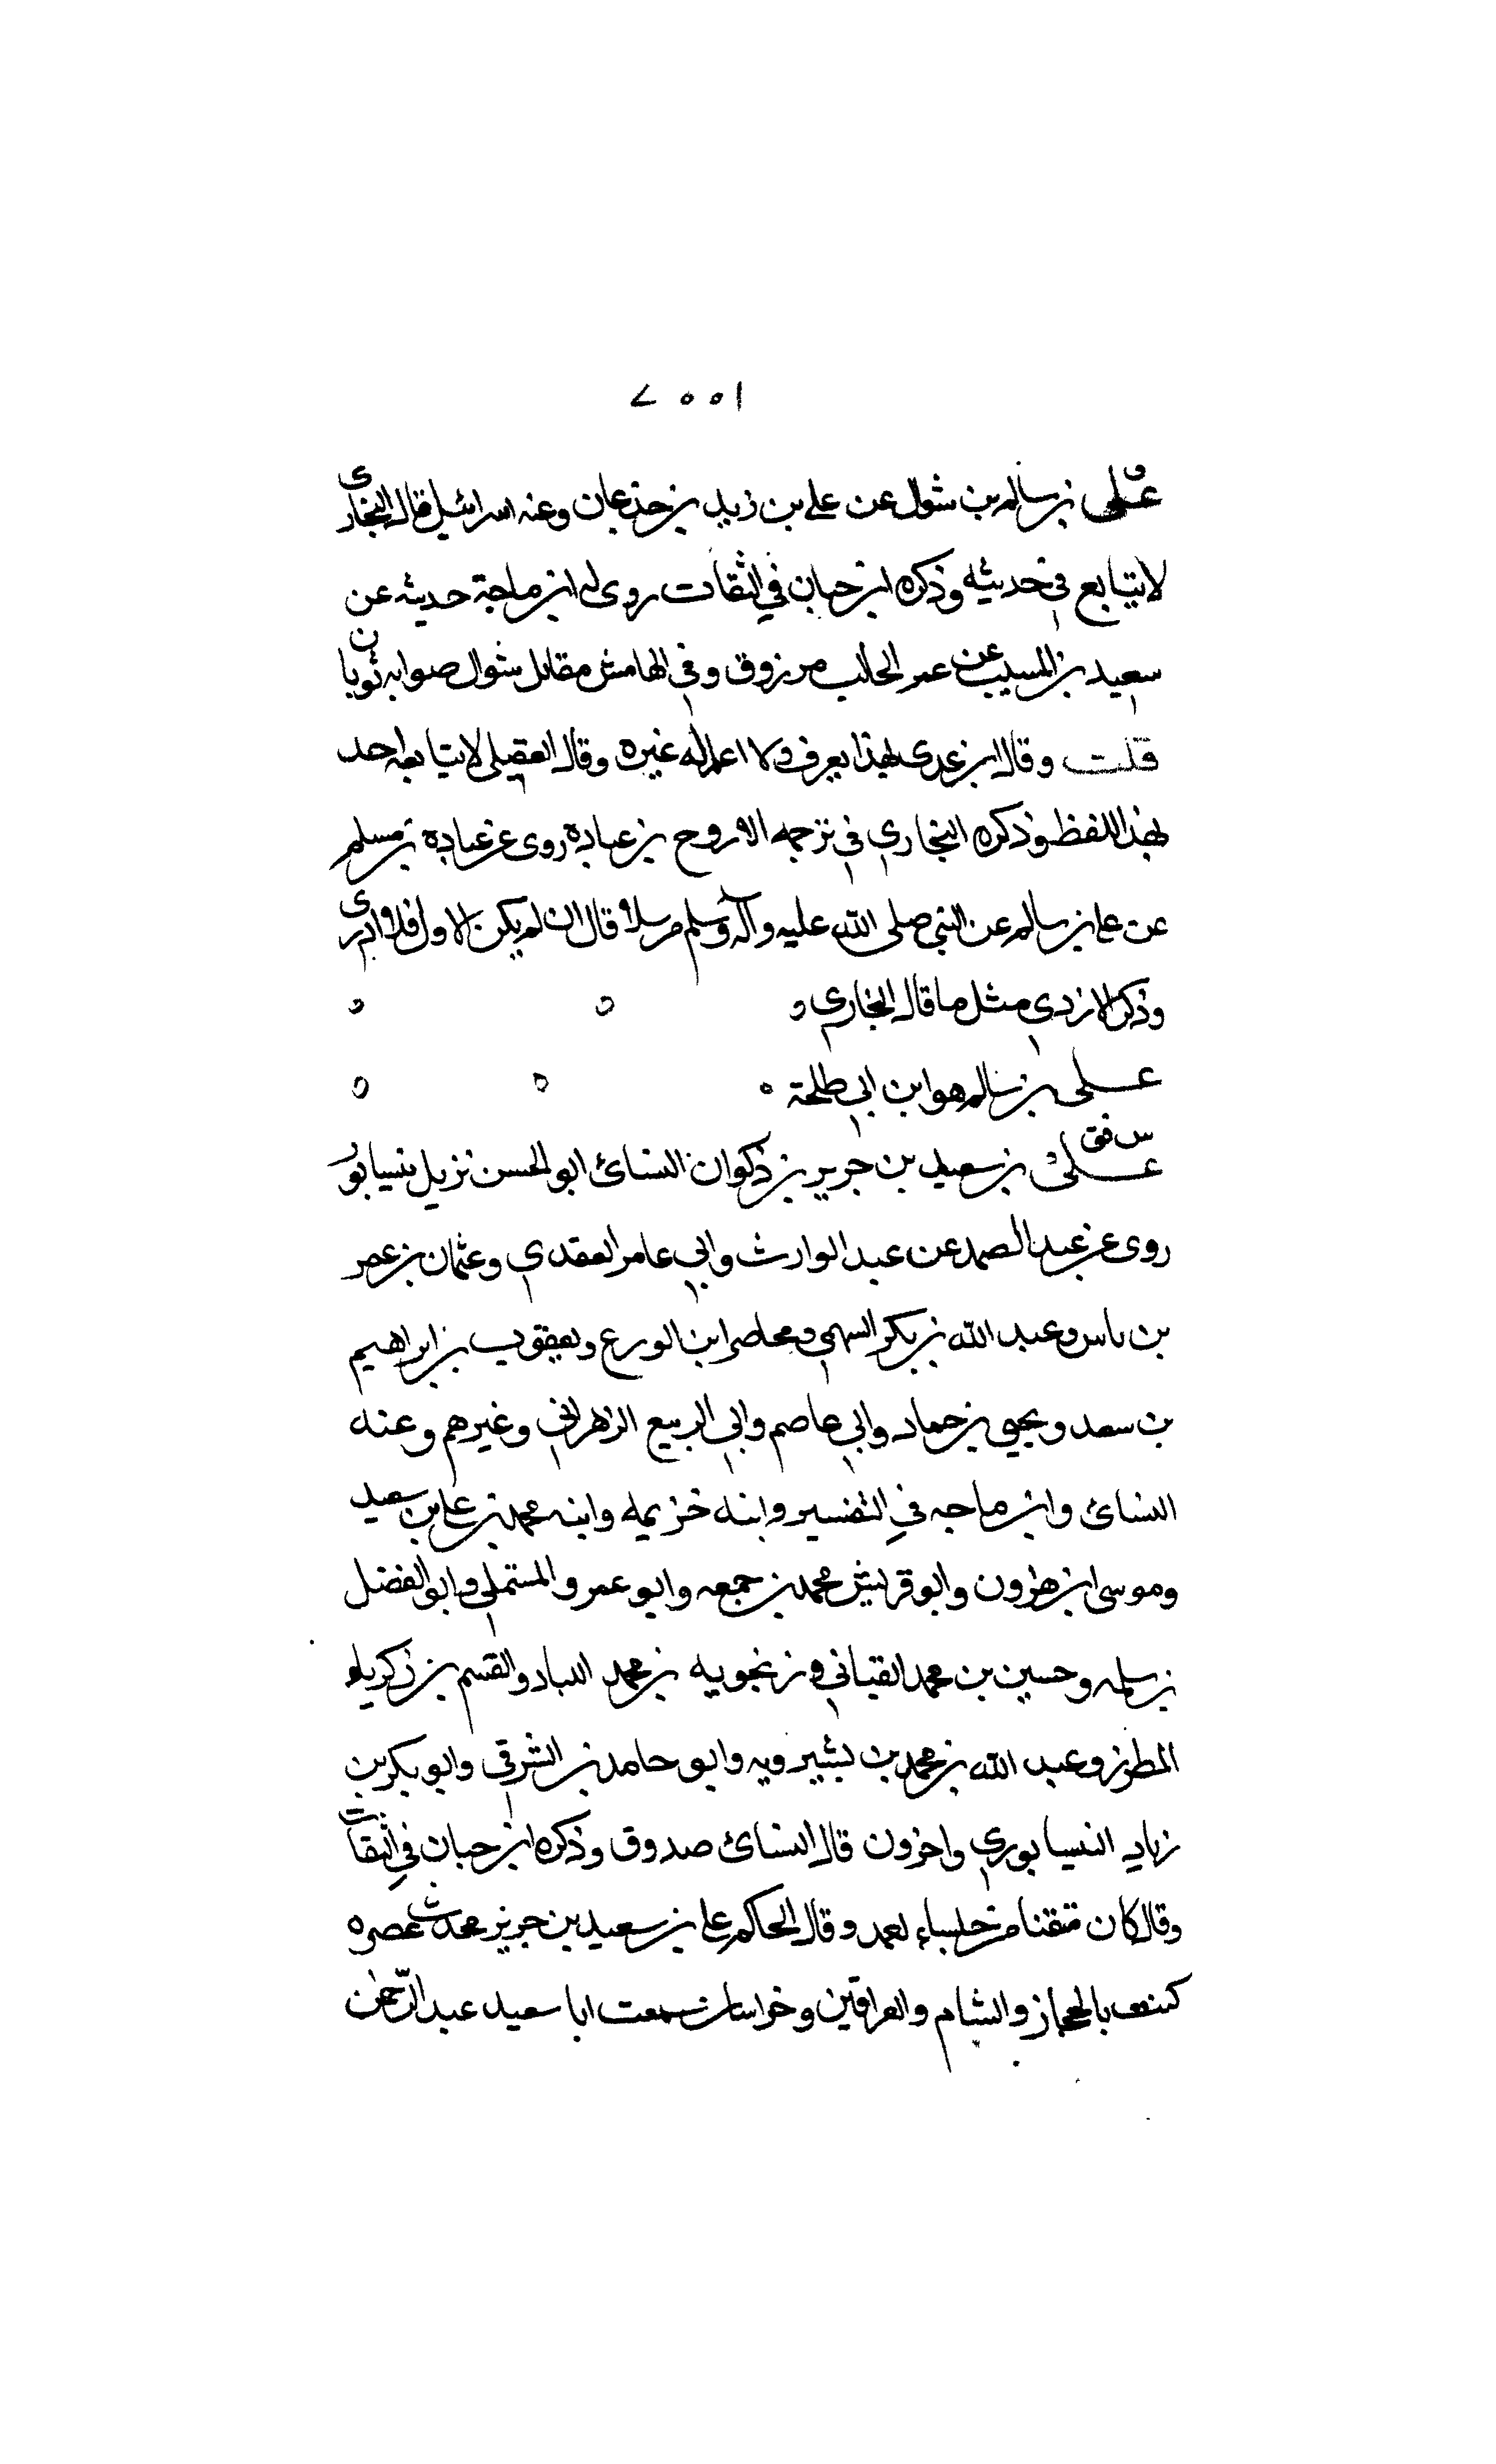 ١٥٥٧
ق
علي بن سالم بن شوال عن علي بن زيد بن جذعان وعنه اسرائيل قال البخاري
لا يتابع في حديثه وذكره ابن حبان في الثقات روى له ابن ماجة حديثه عن
سعيد بن المسيب عن عمر الجالب مرزوق وفي الهامش مقابل شوال صوابه ثوبان
قلت وقال ابن عدي بهذا يعرف ولا اعلم له غيره وقال العقيلي لا يتابعه احد
بهذا اللفظ وذكره البخاري في ترجمه الا روح بن عباده روى عن عباده بن مسلم
عن علي بن سالم عن النبي صلى الله عليه وآله وسلم مرسلا وقال ان لم يكن الاول فلا ادري
وذكر الازدي مثل ما قال البخاري
علي بن سالم هو ابن ابي طلحة
س فق
علي بن سعيد بن جرير بن ذكوان النسائ ابو الحسن نزيل نيسابور
روى عن عبد الصمد عن عبد الوارث وابي عامر العقدي وعثمان بن عمر
بن ناس وعبد الله بن بكر السهمي ومحاصر ابن الورع ويعقوب بن ابراهيم
بن سعد ويحيي بن حماد وابي عاصم وابي الربيع الزهراني وغيرهم وعنه
النسائ وابن ماجه في التفسير وابنه خزيمه وابنه محمد بن علي بن سعيد
وموسى ابن هٰرون وابو قريش محمد بن جمعه وابو عمرو المستملي وابو الفضل
بن سلمه وحسين بن محمد القباني وزنجويه بن محمد اللباد والقسم بن زكرياء
المطرز وعبد الله بن محمد بن بشيرويه وابو حامد بن الشرقي وابو بكر بن
زياد النيسابوري واخرون قال النسائ صدوق وذكره ابن حبان في الثقات
وقال كان متقنا من جلساء احمد وقال الحاكم علي بن سعيد بن جرير محدث عصره
كتب بالحجاز والشام والعراقين وخراسان سمعت ابا سعيد عبد الرحمٰن